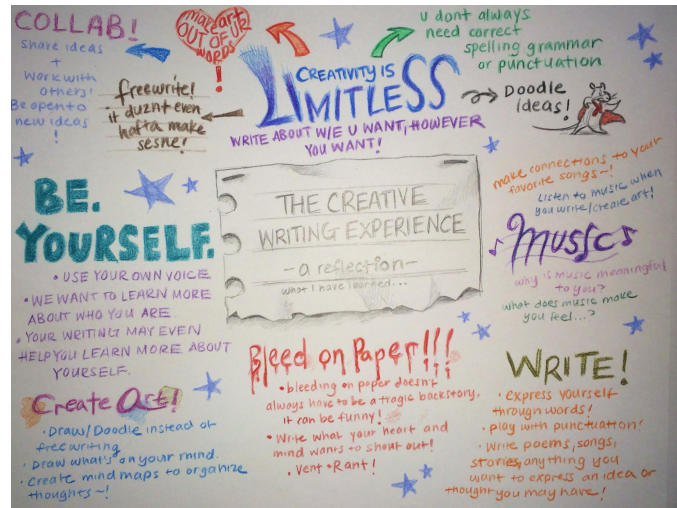 COLLAB!
share ideas
+
work with
others!
Be open to
new ideas
!
make art
OUT OF UR
WORDS
!
freewrite!
it duznt even
hafta make
sesne!
CREATIVITY IS
LIMITLESS
WRITE ABOUT W/E U WANT, HOWEVER
YOU WANT!
u dont always
need correct
spelling grammar
or punctuation
DOODLE
IDEAS!
BE.
YOURSELF.
• USE YOUR OWN VOICE
• WE WANT TO LEARN MORE
ABOUT WHO YOU ARE
• YOUR WRITING MAY EVEN
HELP YOU LEARN MORE ABOUT
YOURSELF.
THE CREATIVE
WRITING EXPERIENCE
- a reflection -
what I have learned...
make connections to your
favorite songs~!
Listen to music when
you write/create art!
music
why is music meaningful
to you?
what does music make
you feel...?
Create Art!
• Draw/Doodle instead of
freewriting
• Draw what's on your mind.
• Create mind maps to organize
thoughts~!
Bleed on Paper!!!
• bleeding on paper doesn't
always have to be a tragic backstory,
it can be funny!
• Write what your heart and
mind wants to shout out!
• Vent + Rant!
WRITE!
• express yourself
through words!
• play with punctuation!
• Write poems, songs,
stories, anything you
want to express an idea or
thought you may have!